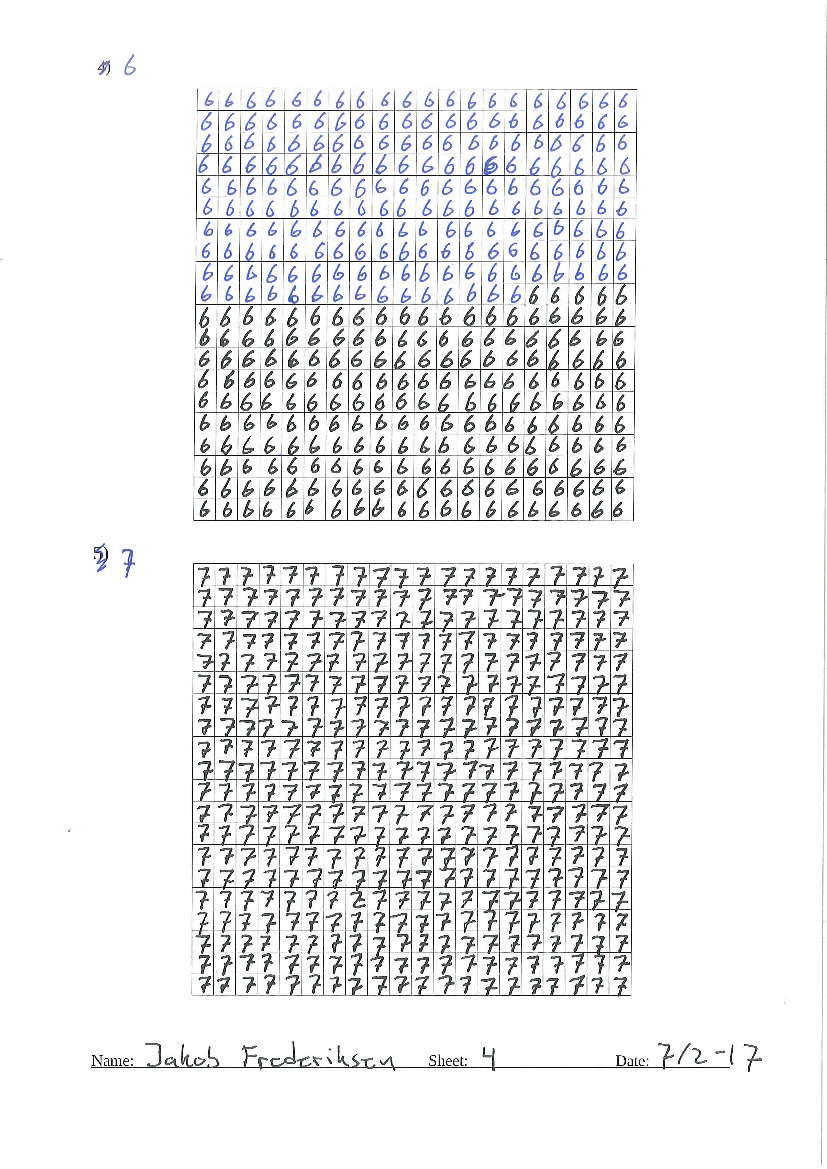 4) 6
6 6 6 6 6 6 6 6 6 6 6 6 6 6 6 6 6 6 6 6
6 6 6 6 6 6 6 6 6 6 6 6 6 6 6 6 6 6 6 6
6 6 6 6 6 6 6 6 6 6 6 6 6 6 6 6 6 6 6 6
6 6 6 6 6 6 6 6 6 6 6 6 6 6 6 6 6 6 6 6
6 6 6 6 6 6 6 6 6 6 6 6 6 6 6 6 6 6 6 6
6 6 6 6 6 6 6 6 6 6 6 6 6 6 6 6 6 6 6 6
6 6 6 6 6 6 6 6 6 6 6 6 6 6 6 6 6 6 6 6
6 6 6 6 6 6 6 6 6 6 6 6 6 6 6 6 6 6 6 6
6 6 6 6 6 6 6 6 6 6 6 6 6 6 6 6 6 6 6 6
6 6 6 6 6 6 6 6 6 6 6 6 6 6 6 6 6 6 6 6
6 6 6 6 6 6 6 6 6 6 6 6 6 6 6 6 6 6 6 6
6 6 6 6 6 6 6 6 6 6 6 6 6 6 6 6 6 6 6 6
6 6 6 6 6 6 6 6 6 6 6 6 6 6 6 6 6 6 6 6
6 6 6 6 6 6 6 6 6 6 6 6 6 6 6 6 6 6 6 6
6 6 6 6 6 6 6 6 6 6 6 6 6 6 6 6 6 6 6 6
6 6 6 6 6 6 6 6 6 6 6 6 6 6 6 6 6 6 6 6
6 6 6 6 6 6 6 6 6 6 6 6 6 6 6 6 6 6 6 6
6 6 6 6 6 6 6 6 6 6 6 6 6 6 6 6 6 6 6 6
6 6 6 6 6 6 6 6 6 6 6 6 6 6 6 6 6 6 6 6
6 6 6 6 6 6 6 6 6 6 6 6 6 6 6 6 6 6 6 6
5) 7
7 7 7 7 7 7 7 7 7 7 7 7 7 7 7 7 7 7 7 7
7 7 7 7 7 7 7 7 7 7 7 7 7 7 7 7 7 7 7 7
7 7 7 7 7 7 7 7 7 7 7 7 7 7 7 7 7 7 7 7
7 7 7 7 7 7 7 7 7 7 7 7 7 7 7 7 7 7 7 7
7 7 7 7 7 7 7 7 7 7 7 7 7 7 7 7 7 7 7 7
7 7 7 7 7 7 7 7 7 7 7 7 7 7 7 7 7 7 7 7
7 7 7 7 7 7 7 7 7 7 7 7 7 7 7 7 7 7 7 7
7 7 7 7 7 7 7 7 7 7 7 7 7 7 7 7 7 7 7 7
7 7 7 7 7 7 7 7 7 7 7 7 7 7 7 7 7 7 7 7
7 7 7 7 7 7 7 7 7 7 7 7 7 7 7 7 7 7 7 7
7 7 7 7 7 7 7 7 7 7 7 7 7 7 7 7 7 7 7 7
7 7 7 7 7 7 7 7 7 7 7 7 7 7 7 7 7 7 7 7
7 7 7 7 7 7 7 7 7 7 7 7 7 7 7 7 7 7 7 7
7 7 7 7 7 7 7 7 7 7 7 7 7 7 7 7 7 7 7 7
7 7 7 7 7 7 7 7 7 7 7 7 7 7 7 7 7 7 7 7
7 7 7 7 7 7 7 7 7 7 7 7 7 7 7 7 7 7 7 7
7 7 7 7 7 7 7 7 7 7 7 7 7 7 7 7 7 7 7 7
7 7 7 7 7 7 7 7 7 7 7 7 7 7 7 7 7 7 7 7
7 7 7 7 7 7 7 7 7 7 7 7 7 7 7 7 7 7 7 7
7 7 7 7 7 7 7 7 7 7 7 7 7 7 7 7 7 7 7 7
Name: Jakob Frederiksen Sheet: 4 Date: 7/2-17